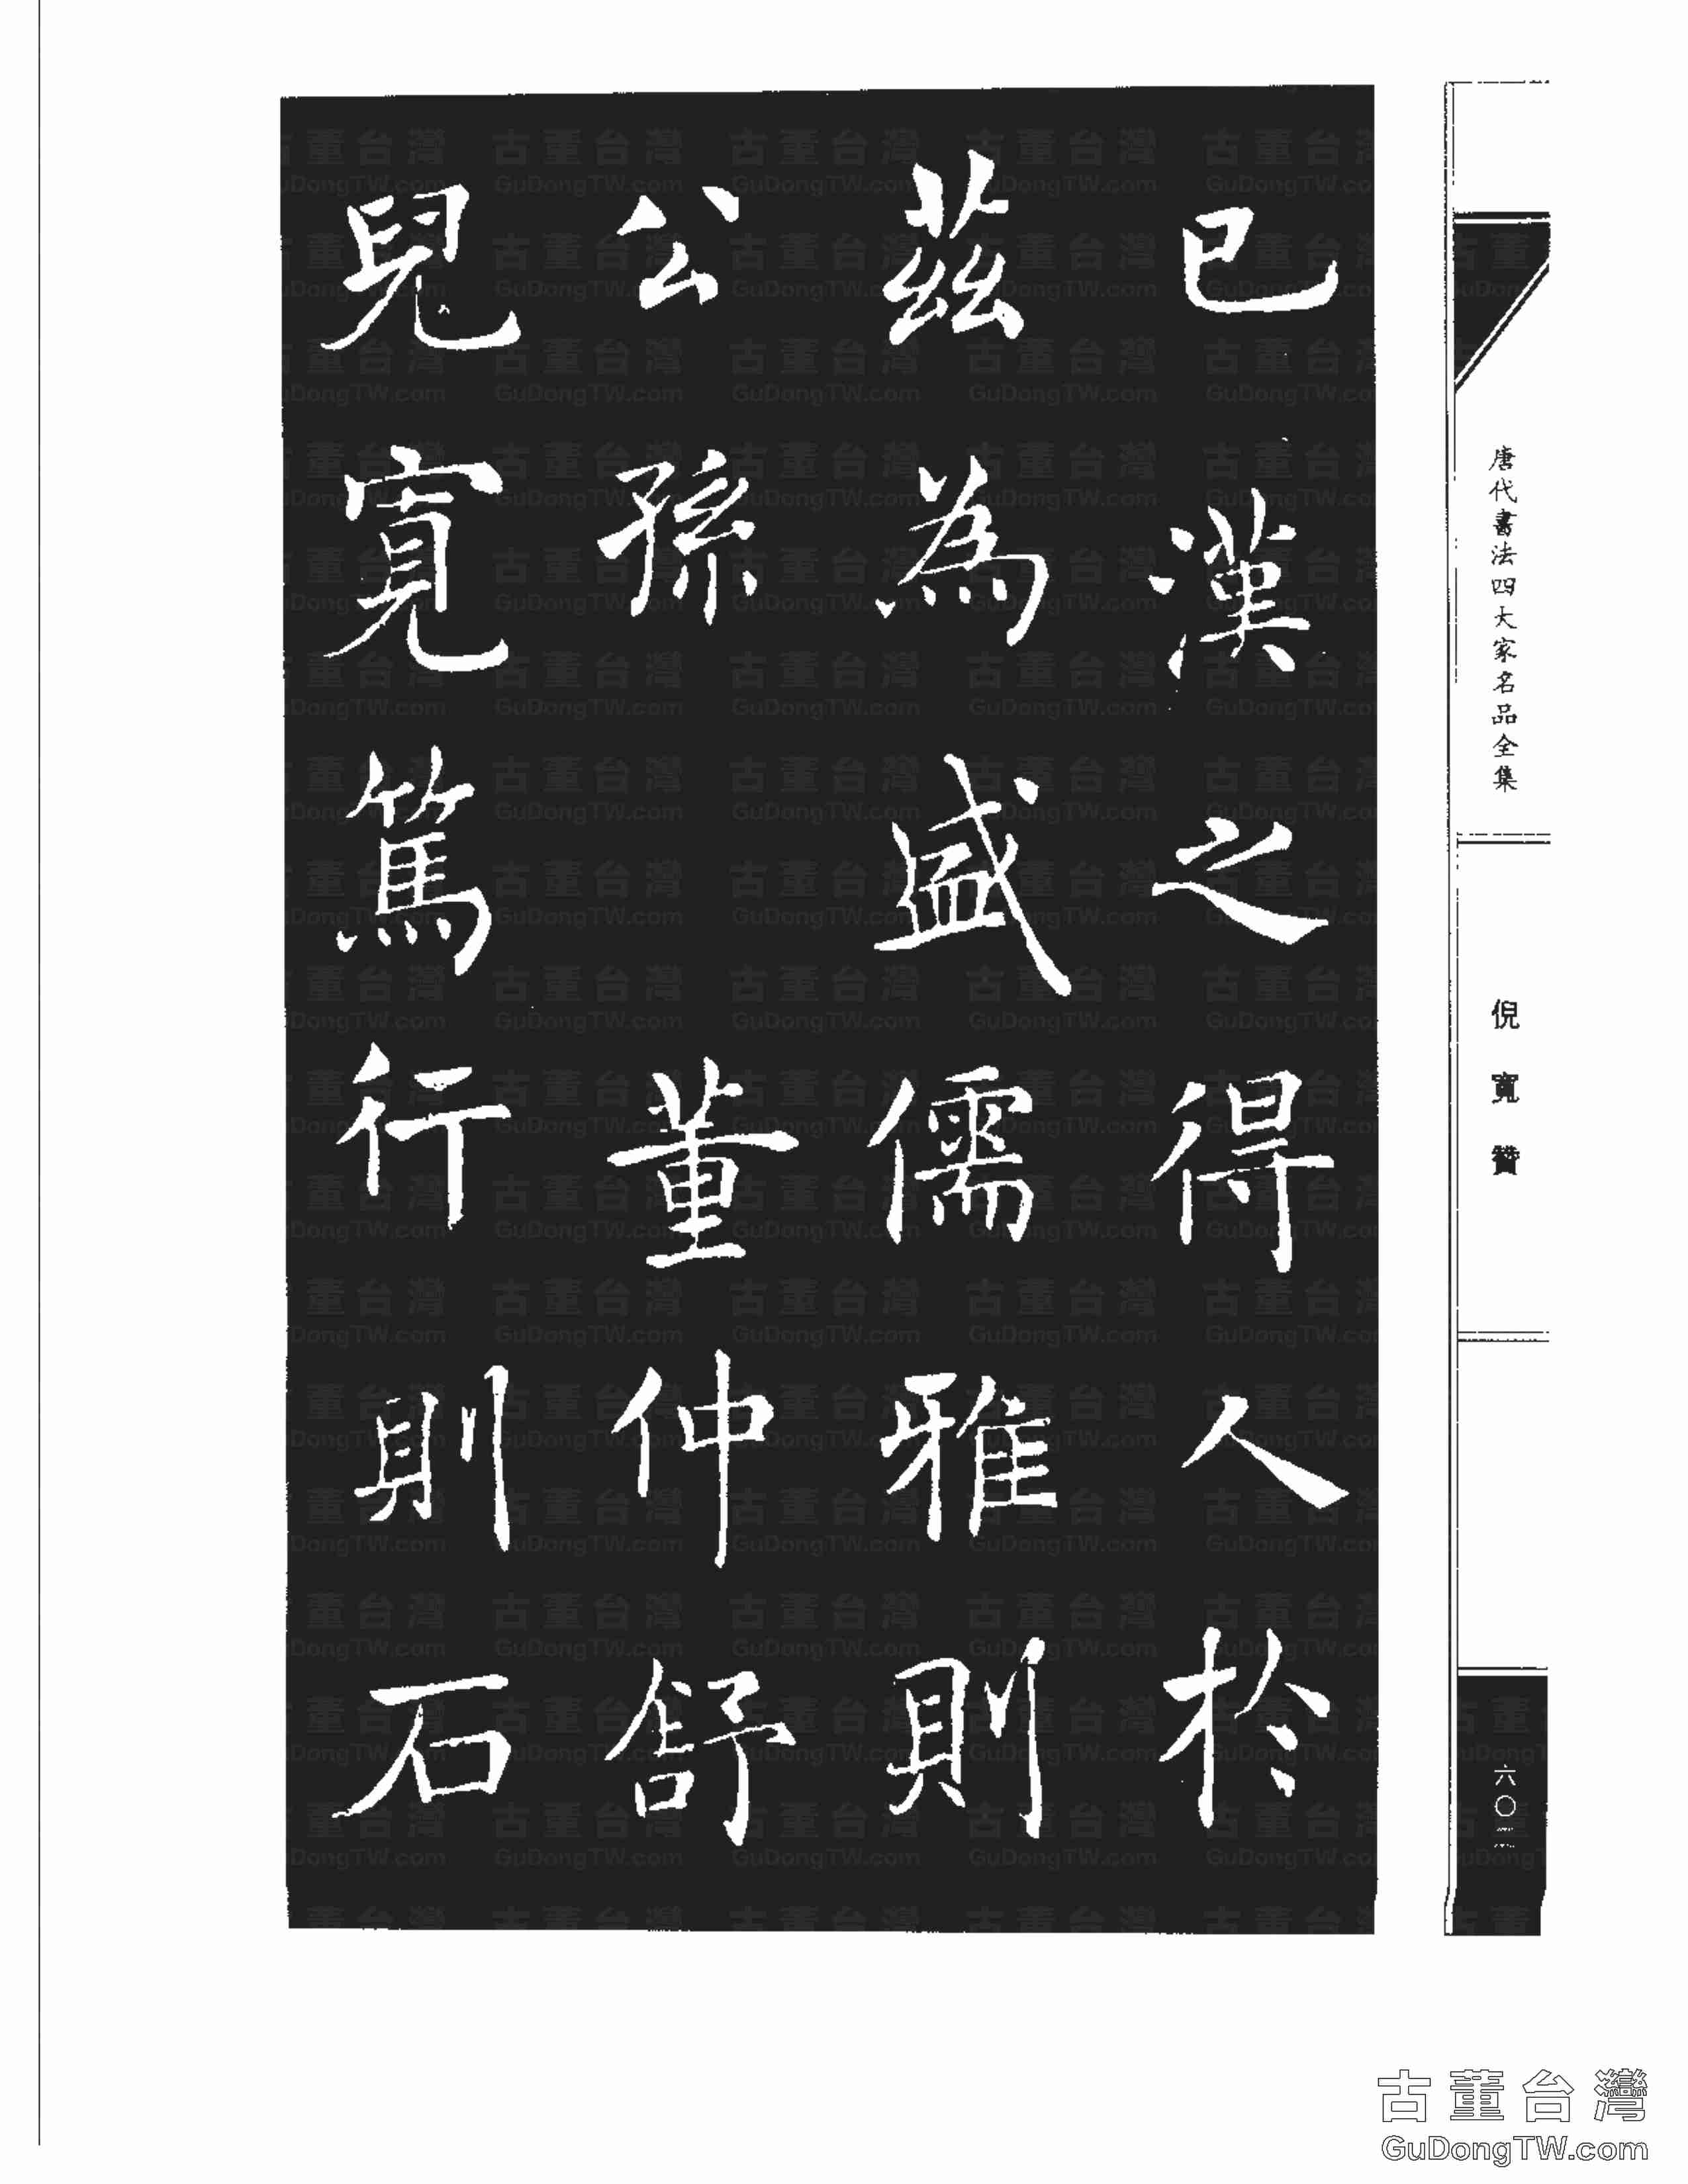 已漢之得人於
茲為盛儒雅則
公孫 董仲舒
兒寬篤行則石
唐代書法四大家名品全集
倪寬贊
六〇二
古董台灣
GuDongTW.com